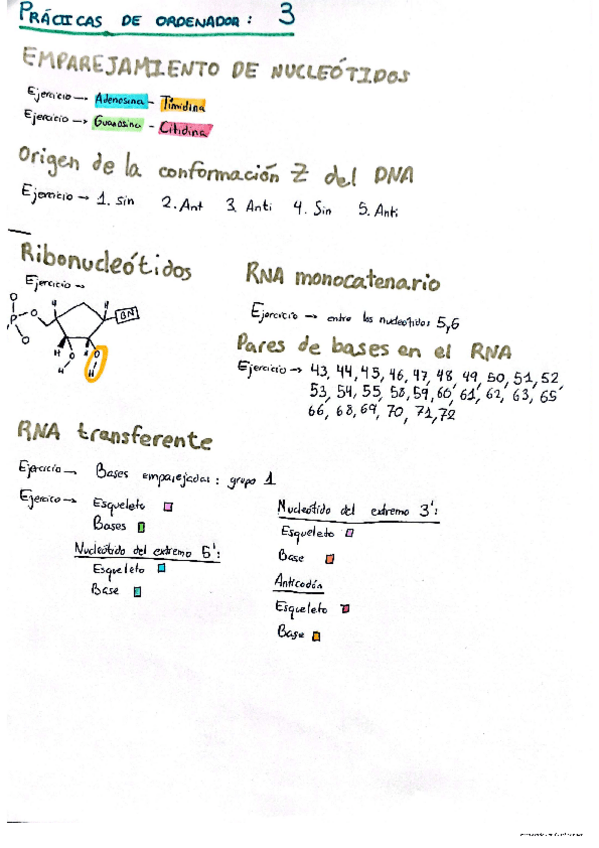 PRÁCICAS DE ORDENADOR: 3
EMPAREJAMIENTO DE NUCLEÓTIDOS
Ejercicio → Adenosina - Timidina
Ejercicio → Guanosina - Citidina
Origen de la conformación Z del DNA
Ejercicio → 1. Sin 2. Ant 3. Anti 4. Sin 5. Anti
Ribonucleótidos
Ejercicio →
O
P
O
O
H
H
BN
H
H
O
O
H
H
RNA monocatenario
Ejercicio → entre los nucleótidos 5,6
Pares de bases en el RNA
Ejercicio → 43, 44, 45, 46, 47, 48, 49, 50, 51, 52
53, 54, 55, 58, 59, 60, 61, 62, 63, 65
66, 68, 69, 70, 71, 72
RNA transferente
Ejercicio → Bases emparejadas: grupo 1
Ejercico → Esqueleto
Bases
Nucleótido del extremo 5':
Esqueleto
Base
Nucleótido del extremo 3':
Esqueleto
Base
Anticodón
Esqueleto
Base